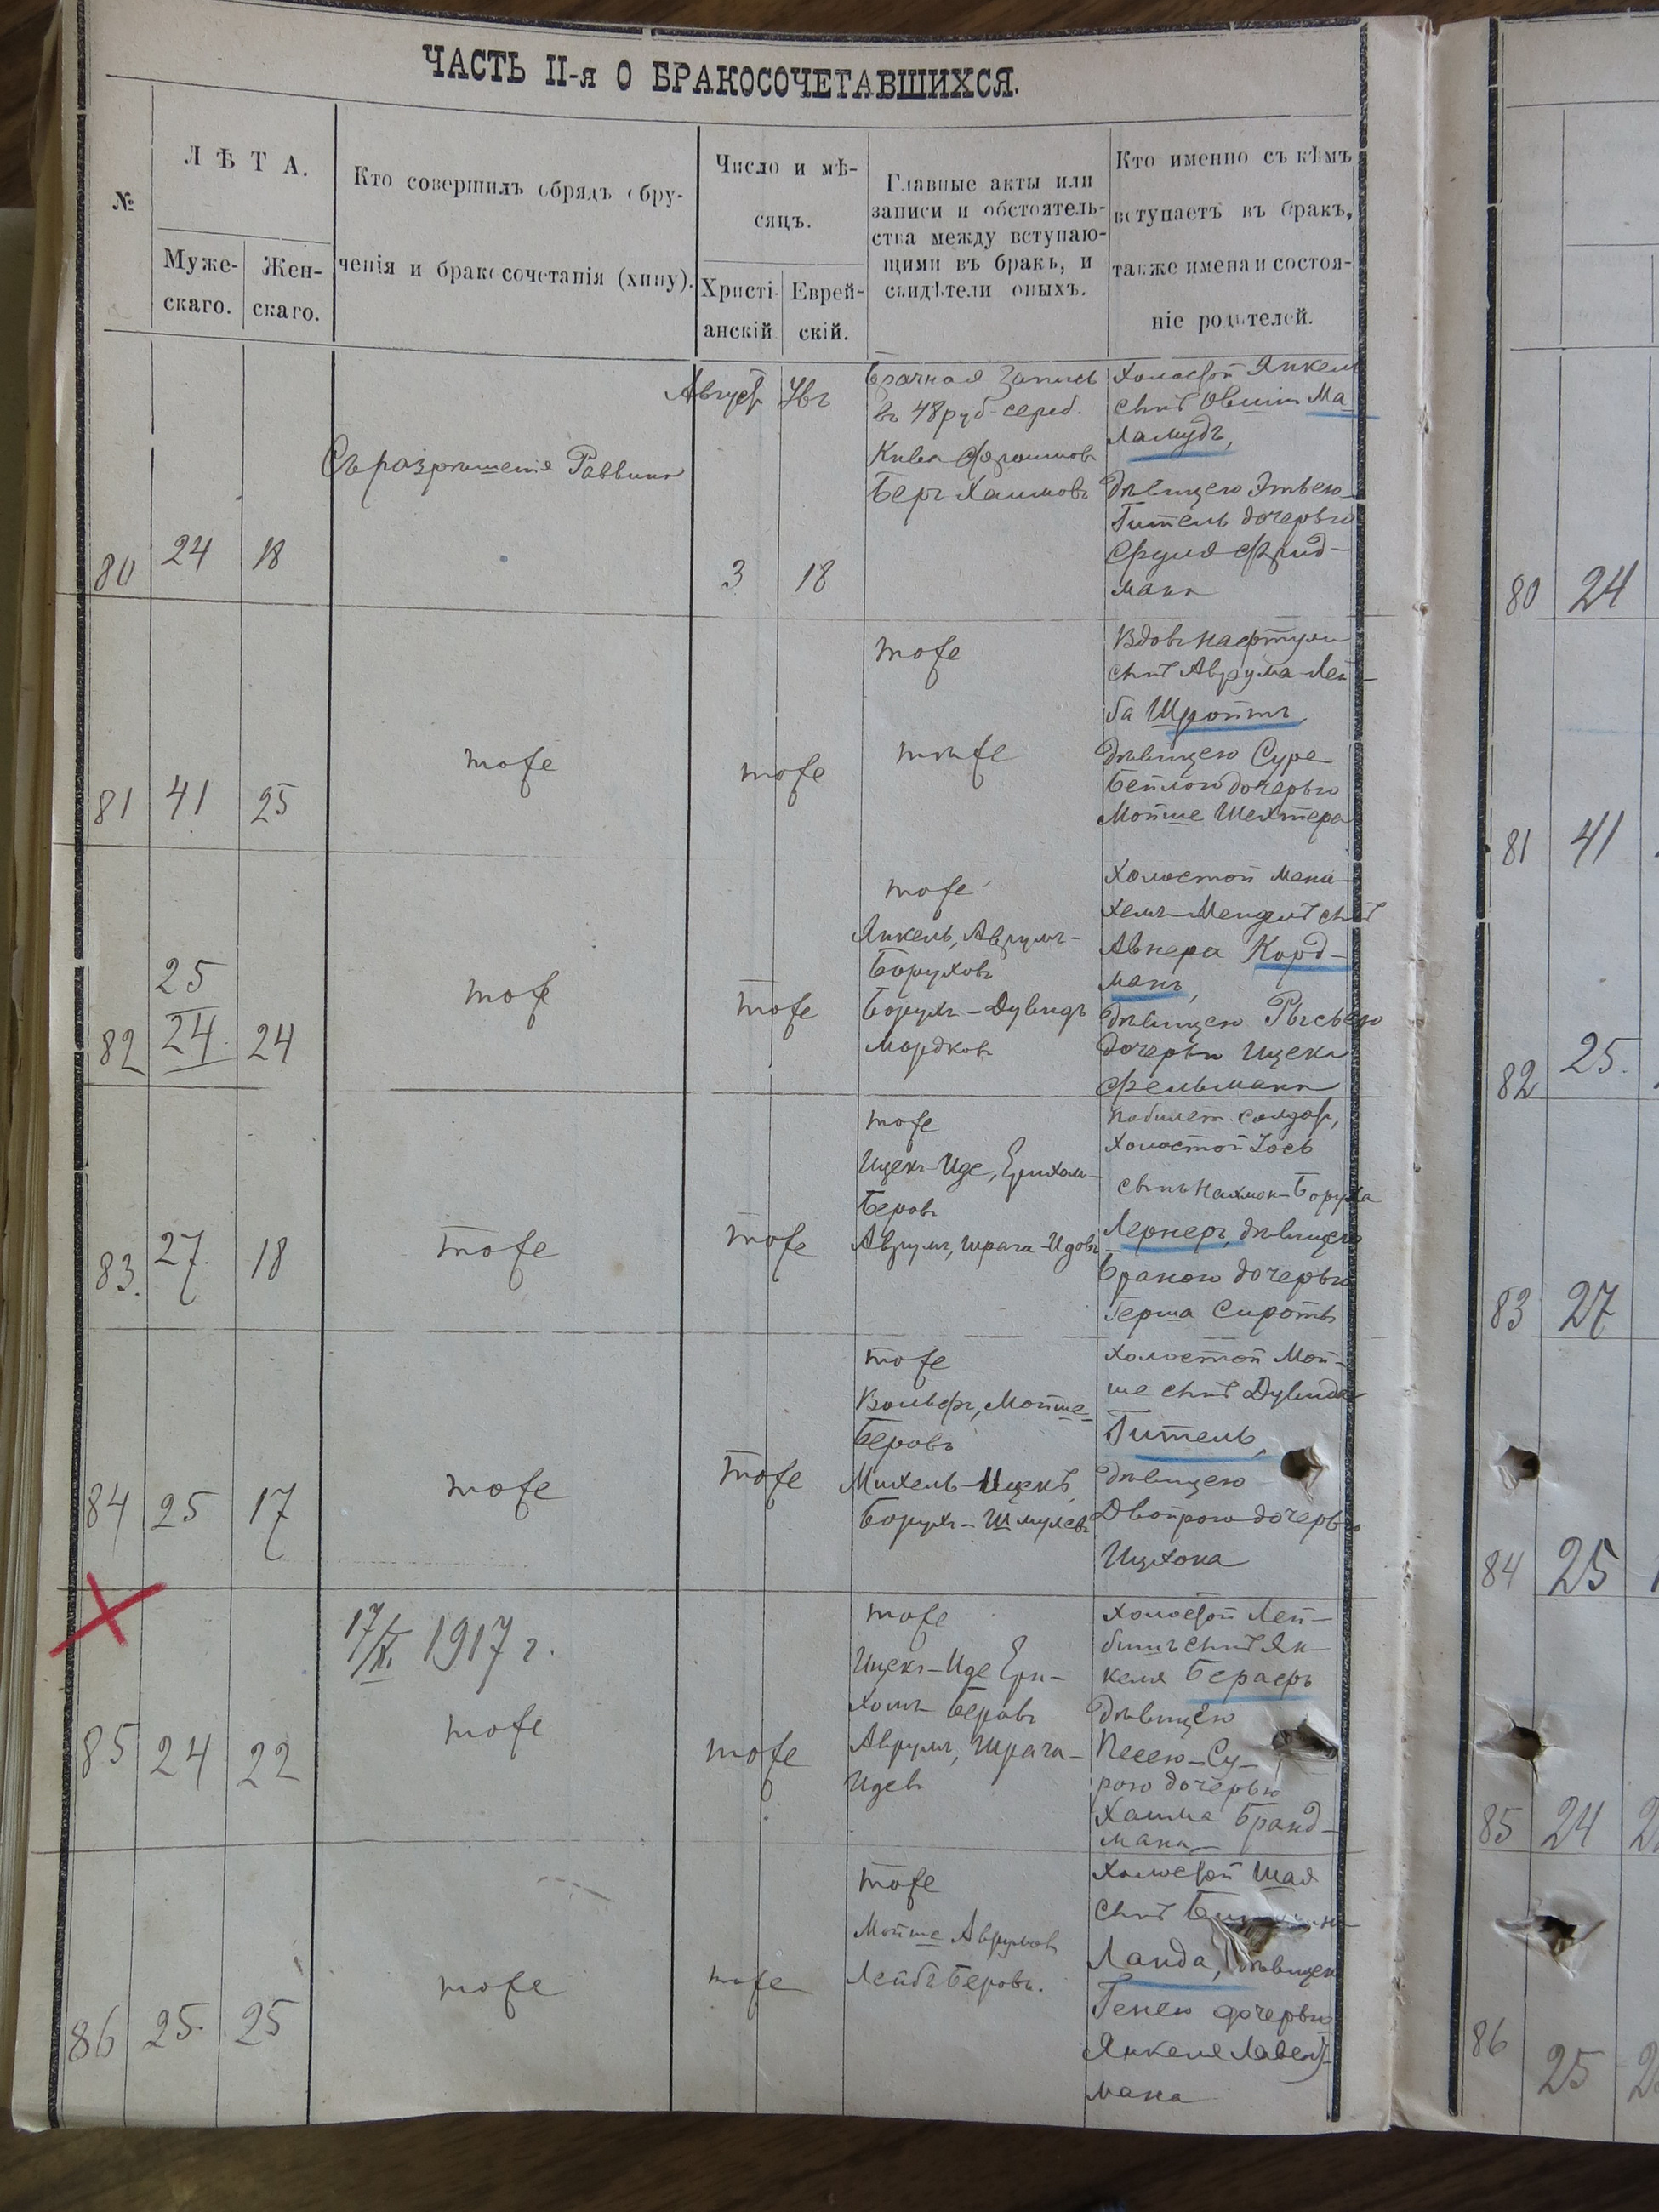 ЧАСТЬ II-я О БРАКОСОЧЕТАВШИХСЯ.
№
ЛѢТА.
Муже-
скаго.
Жен-
скаго.
Кто совершилъ обрядъ обру-
ченія и бракосочетанія (хипу).
Число и мѣ-
сяцъ.
Христі-
анскій
Еврей-
скій.
Главные акты или
записи и обстоятель-
ства между вступаю-
щими въ бракъ, и
свидѣтели оныхъ.
Кто именно съ кѣмъ
вступаетъ въ бракъ,
также имена и состоя-
ніе родителей.
80
24
18
Съ разрѣшенія Раввина
Август
3
18
Брачная запись
въ 48 руб. сереб.
Кива
Беръ Хаимовъ
Холостой Янкель
сынъ Овшія Ма-
ламудъ,
дѣвицею Этлею-
Гитель дочерью
Фрид-
мана
81
41
25
тоже
тоже
тоже
тоже
Вдовъ Нафтули
сынъ Аврума-Лей-
ба Шройтъ,
дѣвицею Суре-
Бейлою дочерью
Мойше Шехтера
82
25
24
24
тоже
тоже
тоже
Янкель, Аврумъ-
Боруховъ
Борухъ-Дувидъ
Мордковъ
Холостой Мена-
хемъ-Мендель сынъ
Авнера Корд-
манъ,
дѣвицею Рысьею
дочерью Ицека
Фельмана
83.
27.
18
тоже
тоже
тоже
Ицекъ-Иде, Ерихом-
Беровъ
Аврумъ, Шрага-Идовъ
по билет. солдат,
Холостой Іось
сынъ Нахмон-Боруха
Лернеръ, дѣвицею
Браною дочерью
Герша Сироты
84
25
17
тоже
тоже
тоже
Вольфъ, Мойше-
Беровъ
Михель-Ицекъ,
Борухъ-Шмулевъ
Холостой Мой-
ше сынъ Дувида
Гитель,
дѣвицею
Двойрою дочерью
Ицхока
85
24
22
17/XI 1917 г.
тоже
тоже
тоже
Ицекъ-Иде Ери-
хомъ Беровъ
Аврумъ, Шрага-
Идевъ
Холостой Лей-
бишъ сынъ Ян-
келя Бергеръ
дѣвицею
Песею-Су-
рою дочерью
Хаима Бранд-
мана
86
25
25
тоже
тоже
тоже
Мойше Аврумовъ
Лейбъ Беровъ.
Холостой Шая
сынъ
Ланда, дѣвицею
Генею дочерью
Янкеля
мана
80
24
81
41
82
25.
83
27
84
25
85
24
86
25